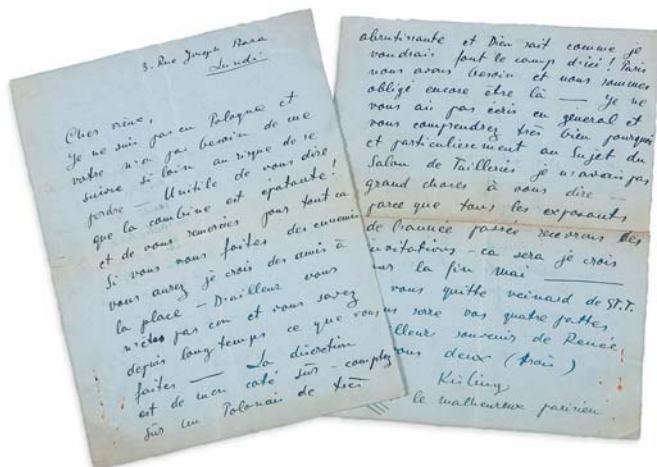 3. Rue Joseph Bara
Lundi
Cher vieux,
Je ne suis pas en Pologne et
votre n'a pas besoin de me
suivre si loin au risque de se
perdre — Unitile de vous dire
que la combine est epatante!
et de vous remercier pour tout ca
Si vous vous faites des ennemis
vous aurez je crois des amis à
la place — D'ailleur vous
n'etes pas con et vous savez
depuis longtemps ce que vous
faites — La discretion
est de mon coté sûr - comptez
sûr un Polonais de très
abrutissante et Dieu sait comme je
voudrais fout le camp d'ici! Paris
nous avons besoin et nous sommes
obligé encore être là — Je ne
vous ai pas écris en general et
vous comprendrez très bien pourquoi
et particulierement au Sujet du
Salon de Tuilleries je n'avais pas
grand choses à vous dire —
parce que tous les exposants
de l'année passée recevrons des
invitations - ca sera je crois
sur la fin mai —
vous quitte veinard de ST.T.
serre vos quatre pattes
lleur souvenir de Renée
vous deux (trois)
Kisling
le malheureux parisien